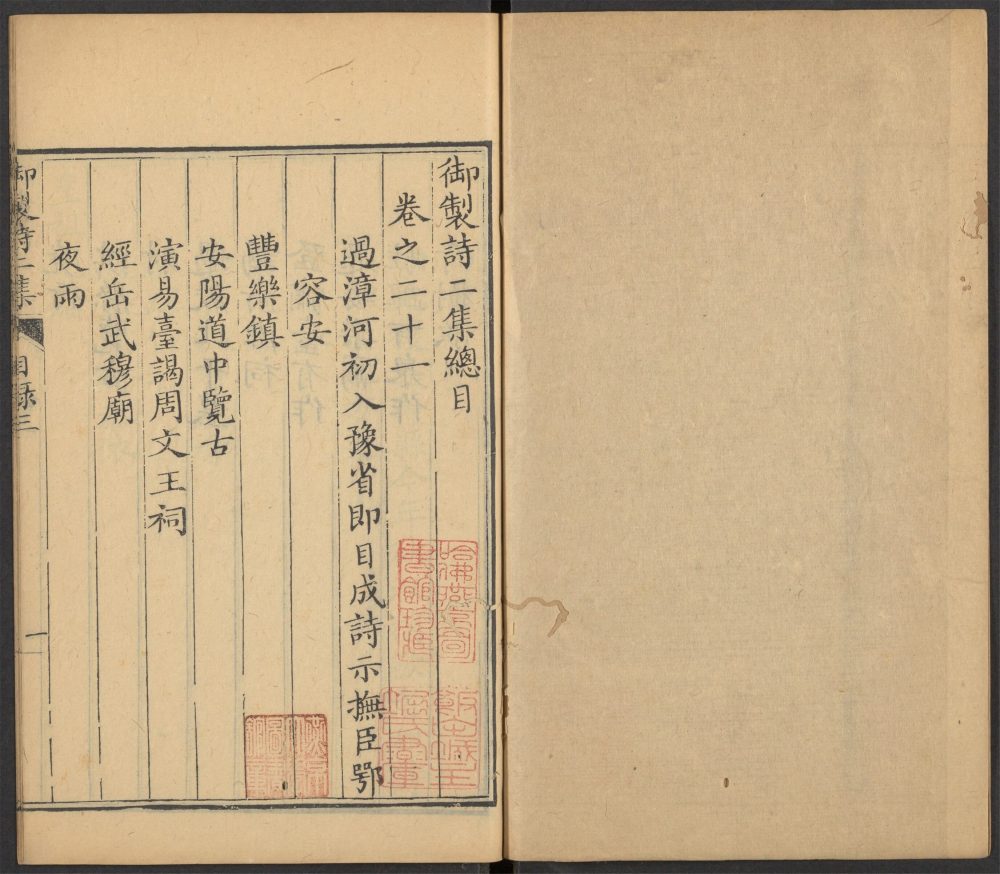 御製詩二集總目
卷之二十一
過漳河初入豫省即目成詩示撫臣鄂
容安
豐樂鎮
安陽道中覽古
演易臺謁周文王祠
經岳武穆廟
夜雨
御製詩二集
目錄三
一
哈佛燕京
書館珍藏